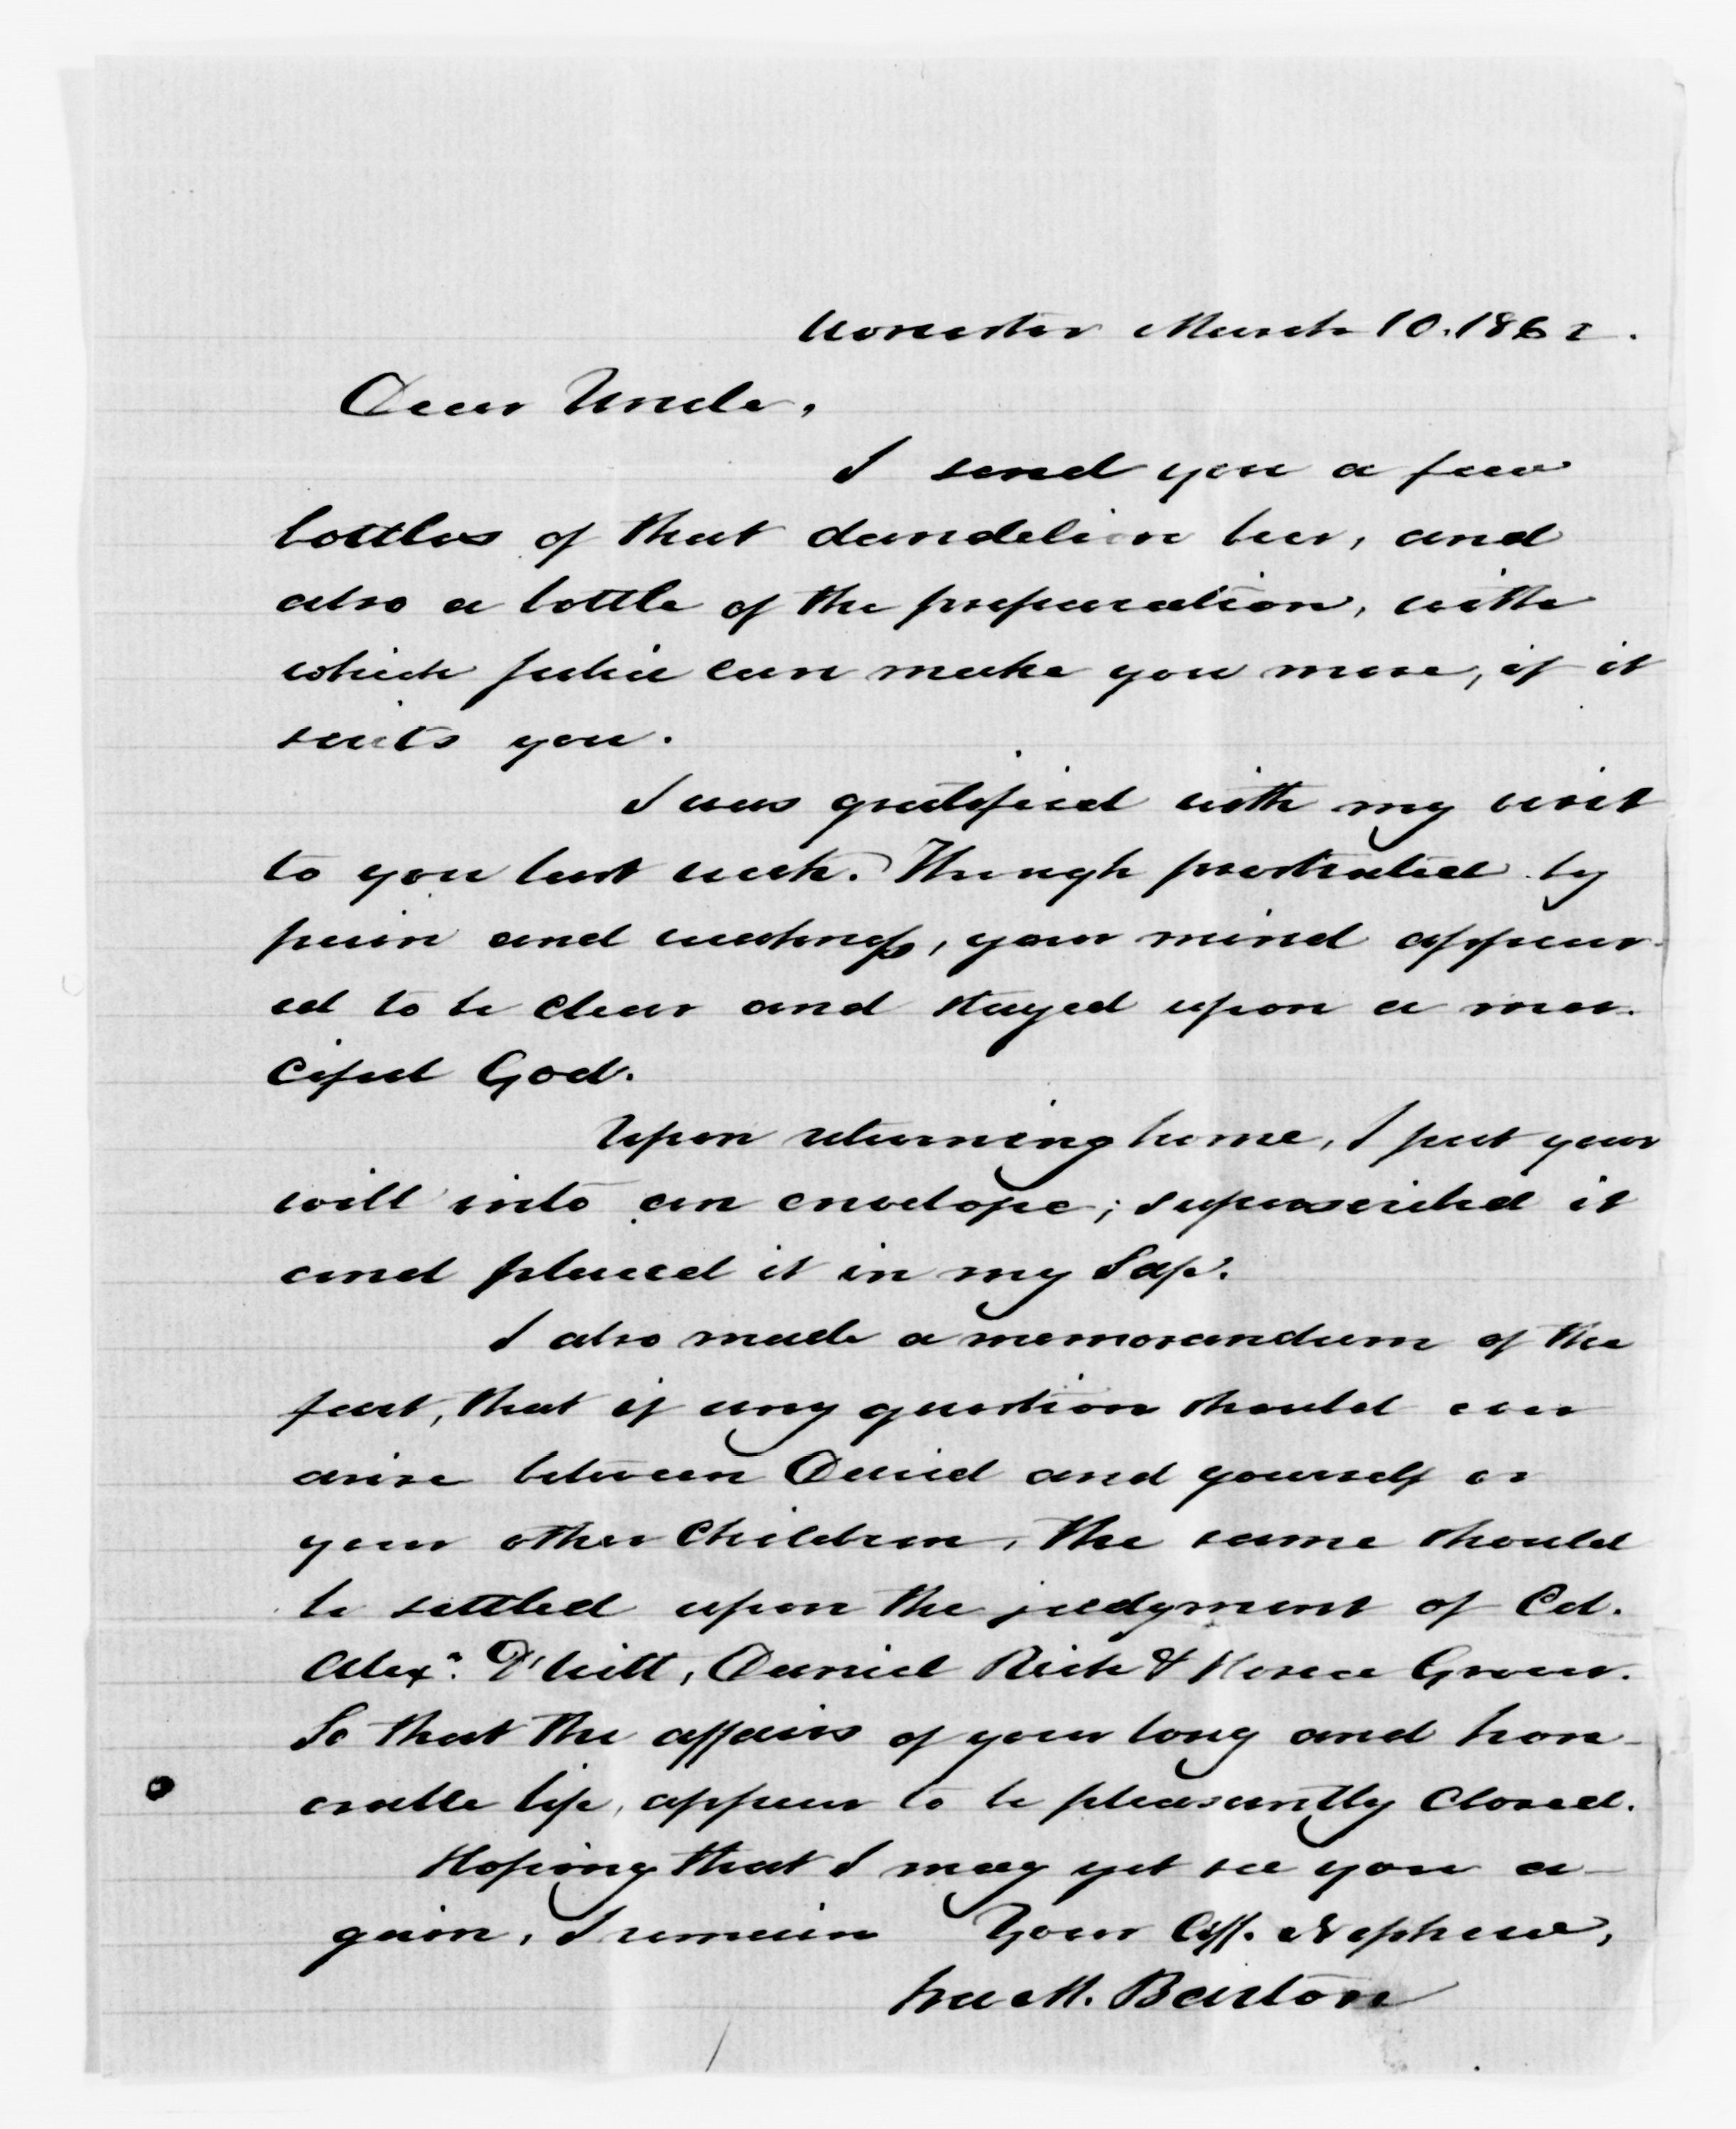 Worcester March 10. 1862.
Dear Uncle,
I send you a few
bottles of that dandelion beer, and
also a bottle of the preparation, with
which Julia can make you more, if it
suits you.
I was gratified with my visit
to you last week. Though prostrated by
pain and weakness, your mind appear-
ed to be clear and stayed upon a mer-
ciful God.
Upon returning home, I put your
will into an envelope; superscribed it
and placed it in my Safe.
I also made a memorandum of the
fact, that if any question should ever
arise between David and yourself or
your other Children, the same should
be settled upon the judgment of Col.
Alexr. D'Witt, Daniel Rich & Horace Grover.
So that the affairs of your long and hon-
orable life, appear to be pleasantly closed.
Hoping that I may yet see you a-
gain, I remain Your Aff. Nephew,
Ira M. Barton